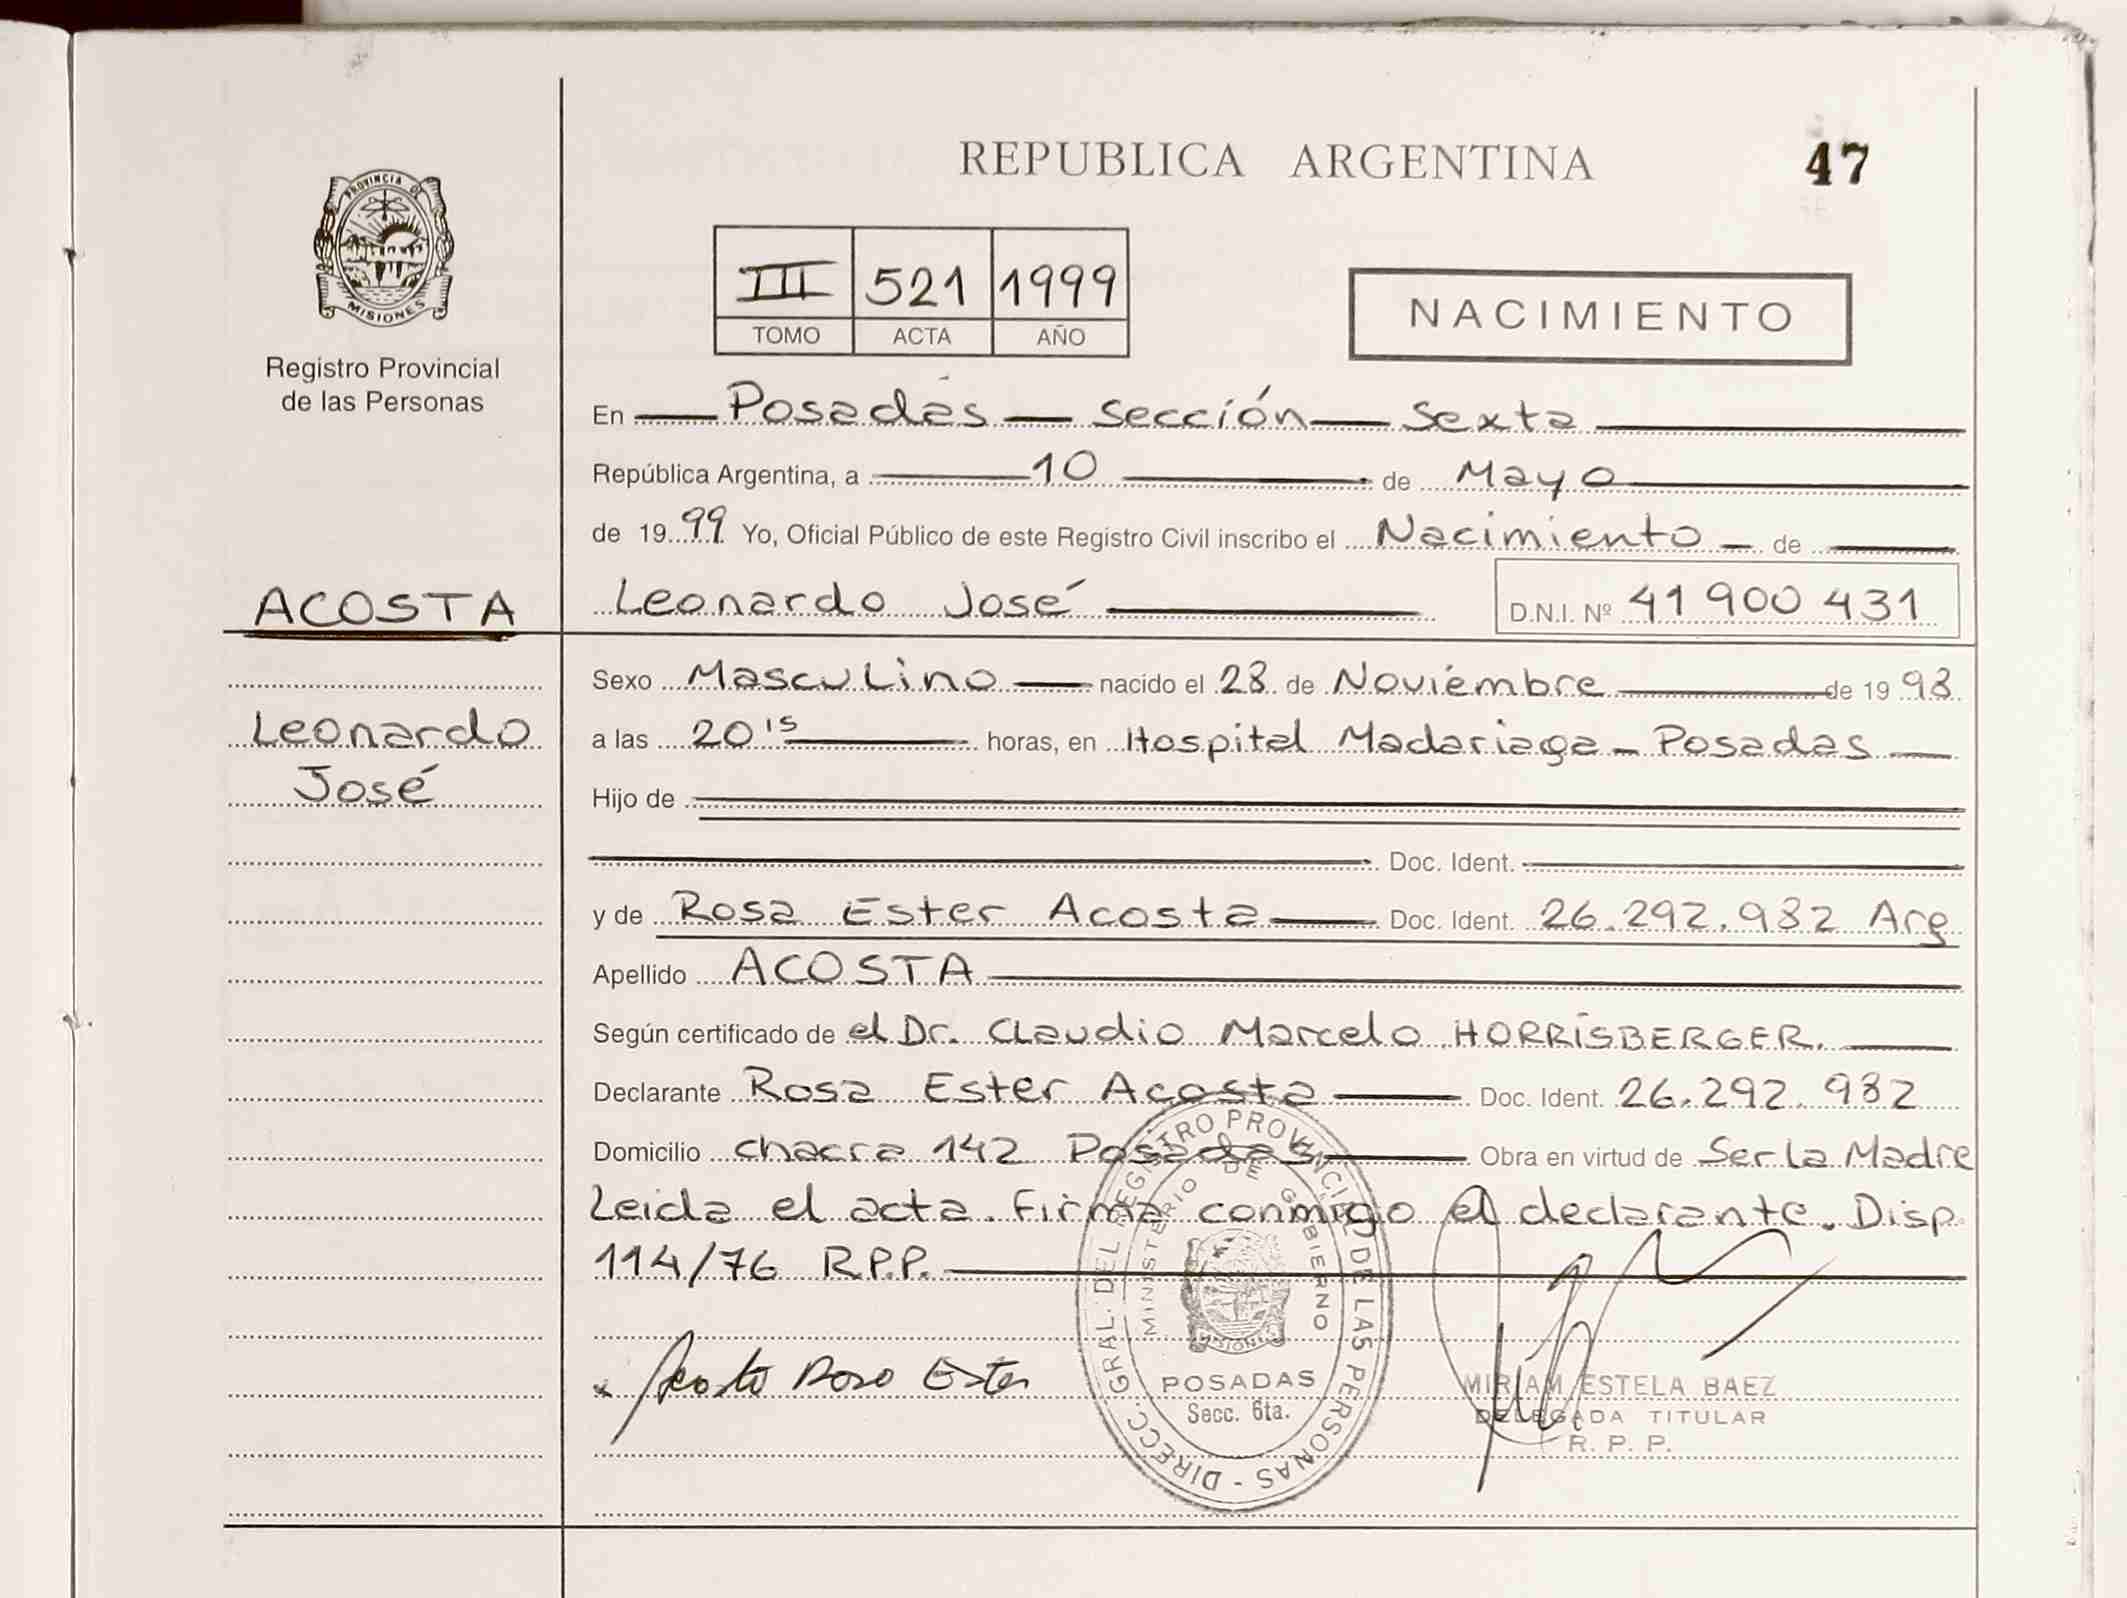 REPUBLICA ARGENTINA
47
PROVINCIA DE
MISIONES
Registro Provincial
de las Personas
III 521 1999
TOMO ACTA AÑO
NACIMIENTO
En Posadas - Sección - Sexta
República Argentina, a 10 de Mayo
de 1999 Yo, Oficial Público de este Registro Civil inscribo el Nacimiento - de
ACOSTA
Leonardo José
D.N.I. Nº 41 900 431
Leonardo
José
Sexo Masculino nacido el 28 de Noviembre de 1998
a las 20 15 horas, en Hospital Madariaga - Posadas
Hijo de
Doc. Ident.
y de Rosa Ester Acosta Doc. Ident. 26.292.982 Arg
Apellido ACOSTA
Según certificado de el Dr. Claudio Marcelo HORRISBERGER.
Declarante Rosa Ester Acosta Doc. Ident. 26.292.982
Domicilio chacra 142 Posadas Obra en virtud de Ser la Madre
Leida el acta. Firma conmigo el declarante. Disp.
114/76 R.P.P.
Acosta Rosa Ester
DIRECC. GRAL. DEL REGISTRO PROVINCIAL DE LAS PERSONAS -
MINISTERIO DE GOBIERNO
MISIONES
POSADAS
Secc. 6ta.
MIRIAM ESTELA BAEZ
DELEGADA TITULAR
R. P. P.